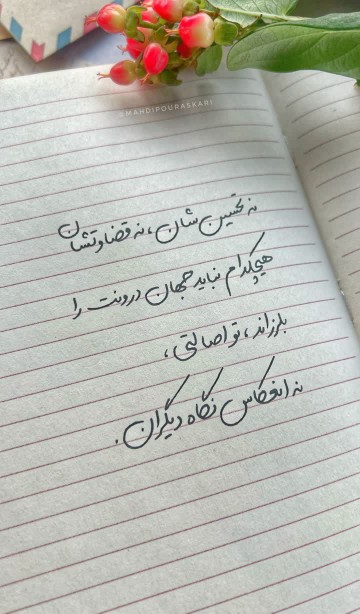 @MAHDIPOURASKARI
نه تحسین شان ، نه قضاوتشان
هیچکدام نباید جهان درونت را
بلرزاند ، تو اصالتی ،
نه انعکاس نگاه دیگران .